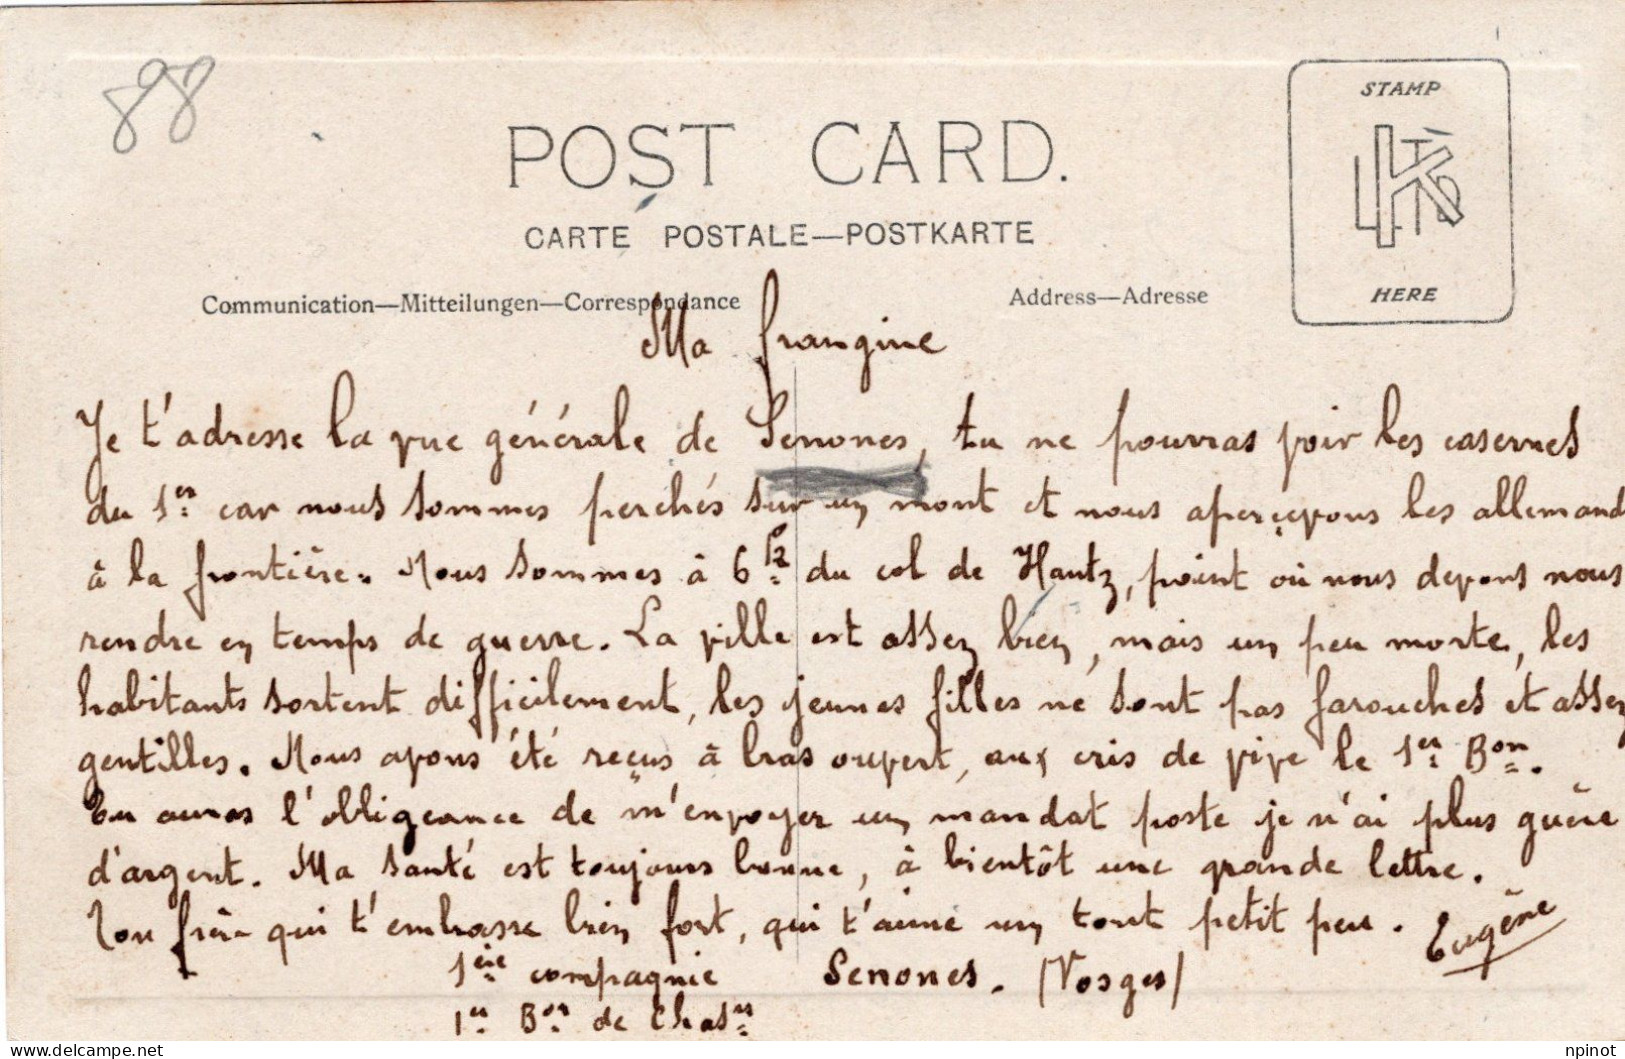 88
POST CARD.
CARTE POSTALE—POSTKARTE
STAMP
HERE
Communication—Mitteilungen—Correspondance
Address—Adresse
Ma frangine
Je t'adresse la vue générale de Senones, tu ne pourras voir les casernes
du 1er car nous sommes perchés sur un mont et nous aperçevons les allemands
à la frontière. Nous sommes à 6 h. du col de Hantz, point où nous devons nous
rendre en temps de guerre. La ville est assez bien, mais un peu morte, les
habitants sortent difficilement, les jeunes filles ne sont pas farouches et assez
gentilles. Nous avons été reçus à bras ouvert, aux cris de vive le 1er Bon.
Tu auras l'obligeance de m'envoyer un mandat poste je n'ai plus guère
d'argent. Ma santé est toujours bonne, à bientôt une grande lettre.
Ton frère qui t'embrasse bien fort, qui t'aime un tout petit peu. Eugène
1ère compagnie Senones. (Vosges)
1er Bon de Chasrs
delcampe.net
npinot